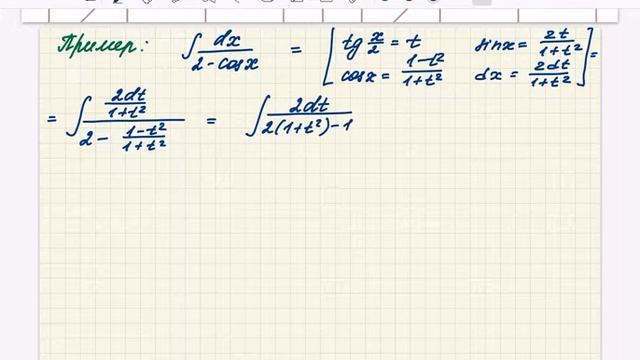 Пример: ∫ dx/(2-cosx) = [ tg x/2 = t sinx = 2t/(1+t²)
cosx = (1-t²)/(1+t²) dx = 2dt/(1+t²) ] =
= ∫ (2dt/(1+t²))/(2 - (1-t²)/(1+t²)) = ∫ 2dt/(2(1+t²)-1